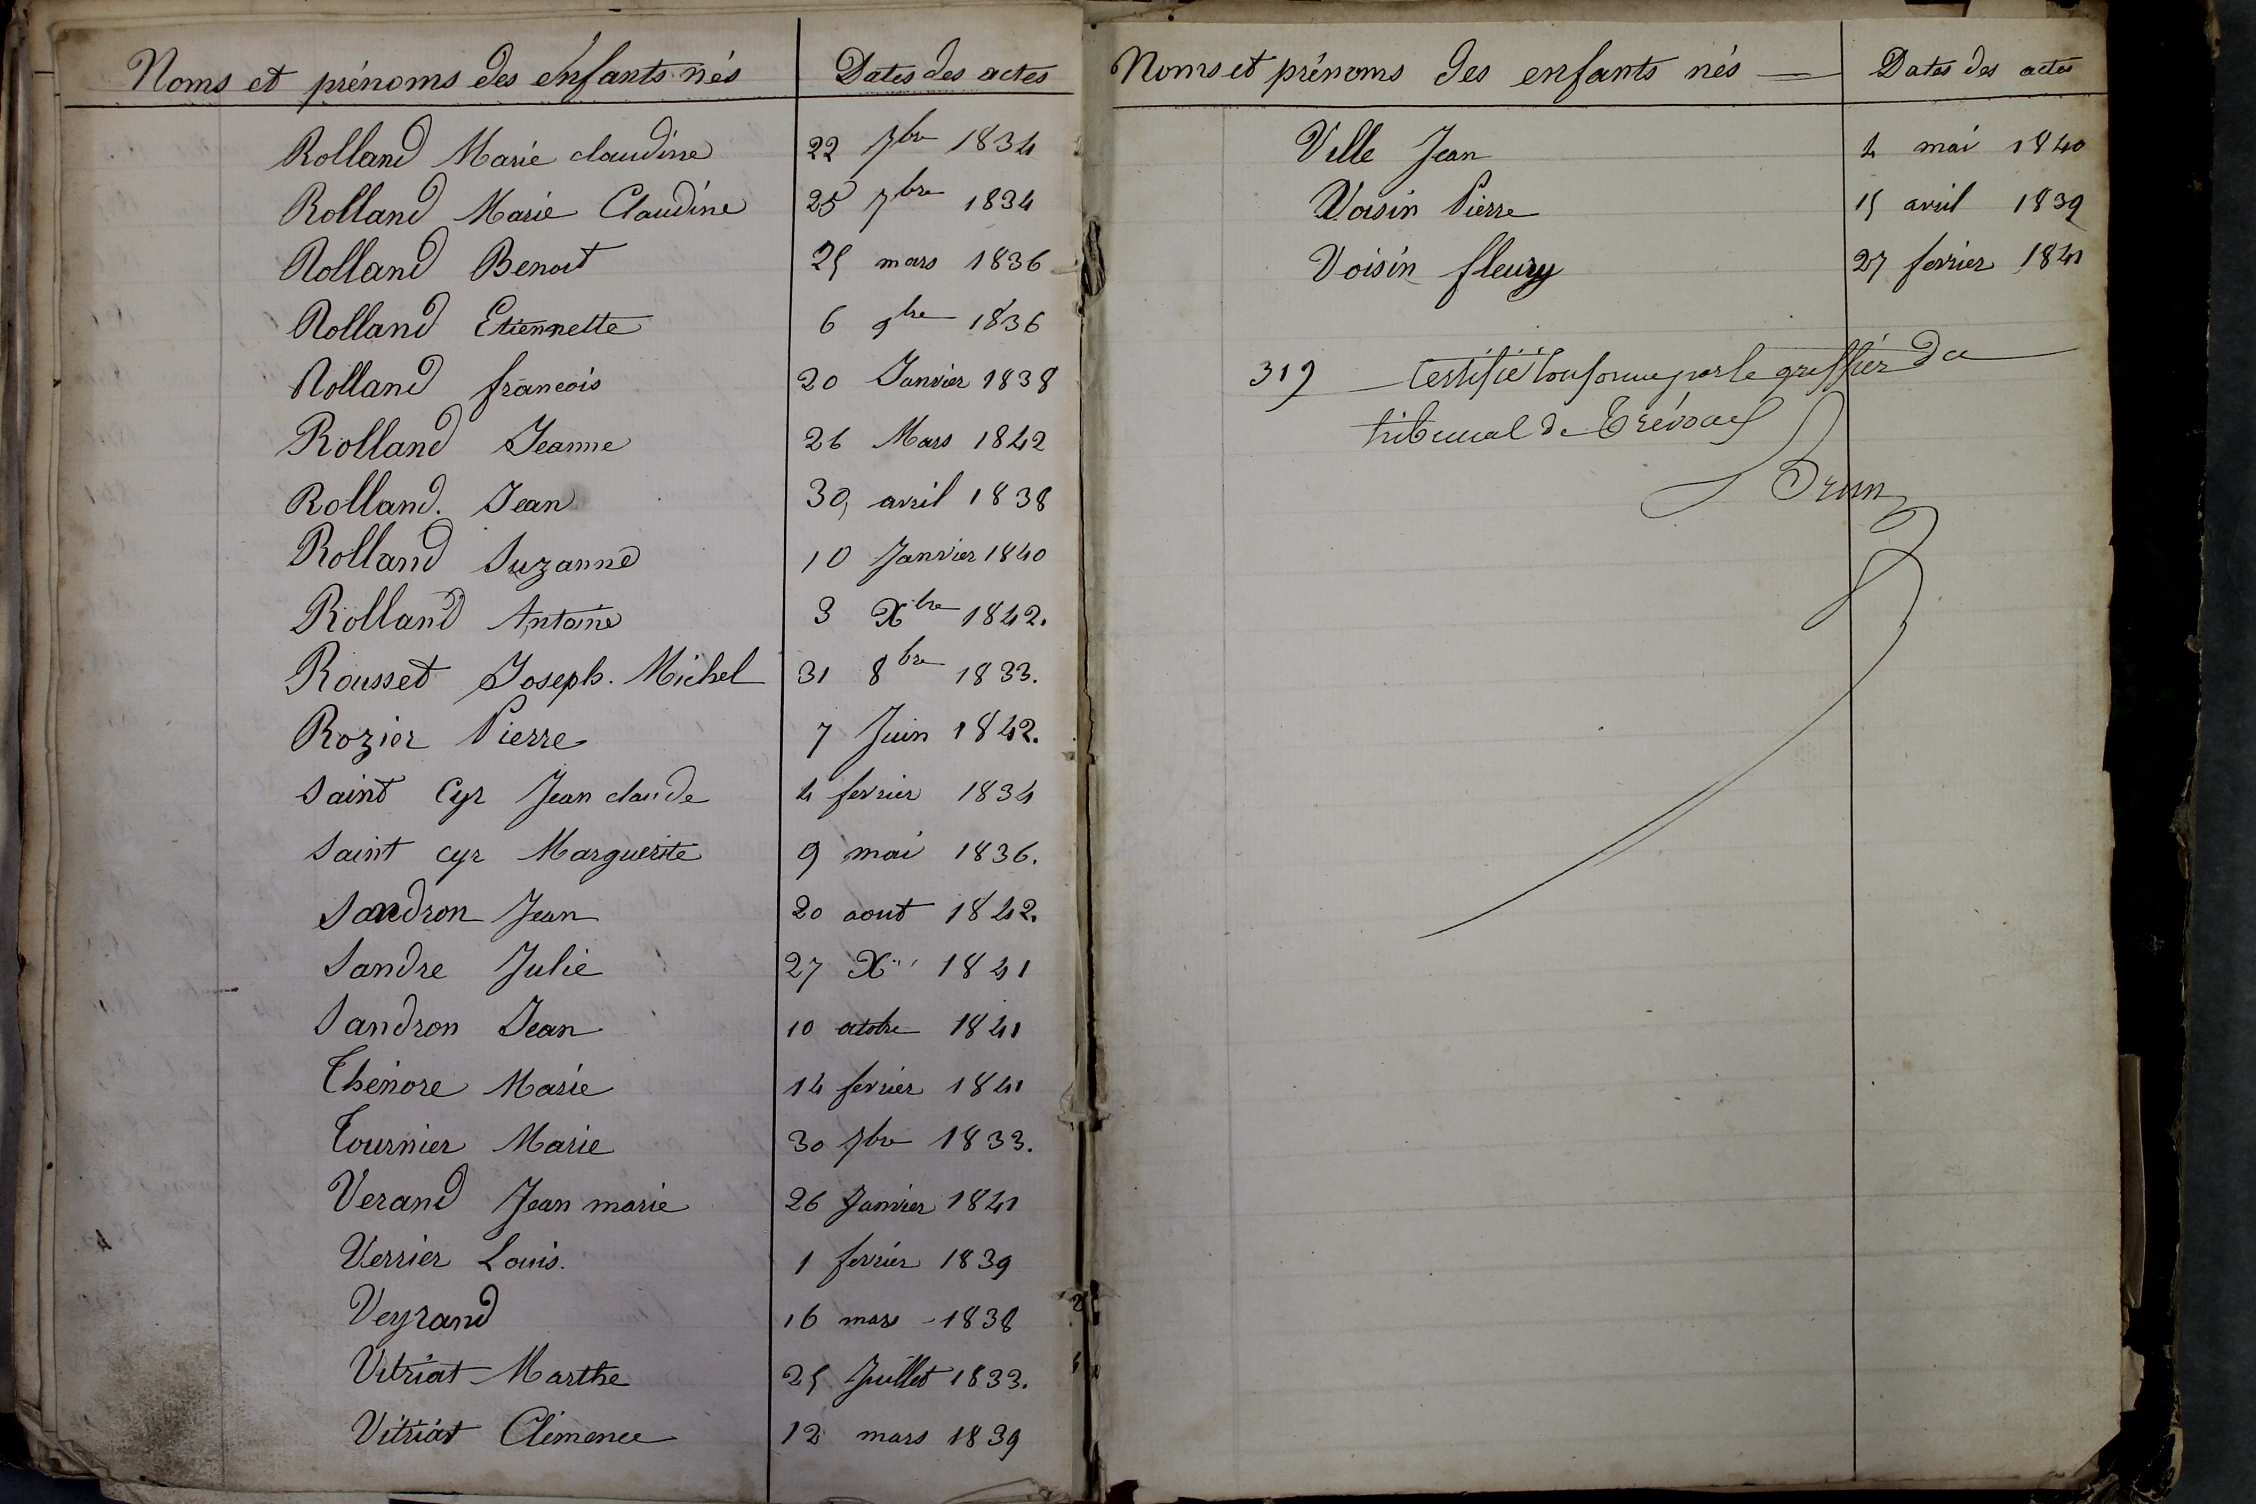 Noms et prénoms des enfants nés Dates des actes
Rolland Marie claudine 22 7bre 1834
Rolland Marie Claudine 25 7bre 1834
Rolland Benoit 25 mars 1836
Rolland Etiennette 6 9bre 1836
Rolland francois 20 Janvier 1838
Rolland Jeanne 26 Mars 1842
Rolland. Jean 30, avril 1838
Rolland Suzanne 10 Janvier 1840
Rolland Antoine 3 Xbre 1842.
Rousset Joseph. Michel 31 8bre 1833.
Rozier Pierre 7 Juin 1842.
Saint Cyr Jean claude 4 fevrier 1834
Saint cyr Marguerite 9 mai 1836.
Sandron Jean 20 aout 1842.
Sandre Julie 27 Xbre 1841
Sandron Jean 10 octobre 1841
Thénore Marie 14 fevrier 1841
Tournier Marie 30 7bre 1833.
Verand Jean marie 26 Janvier 1841
Verrier Louis. 1 fevrier 1839
Veyrand 16 mars - 1838
Vitriat Marthe 25 Juillet 1833.
Vitriat Clémence 12 mars 1839
Noms et prénoms des enfants nés — Dates des actes
Ville Jean 4 mai 1840
Voisin Pierre 15 avril 1839
Voisin fleury 27 fevrier 1841
319 Certifié conforme par le greffier du
tribunal de Trévoux
Brun